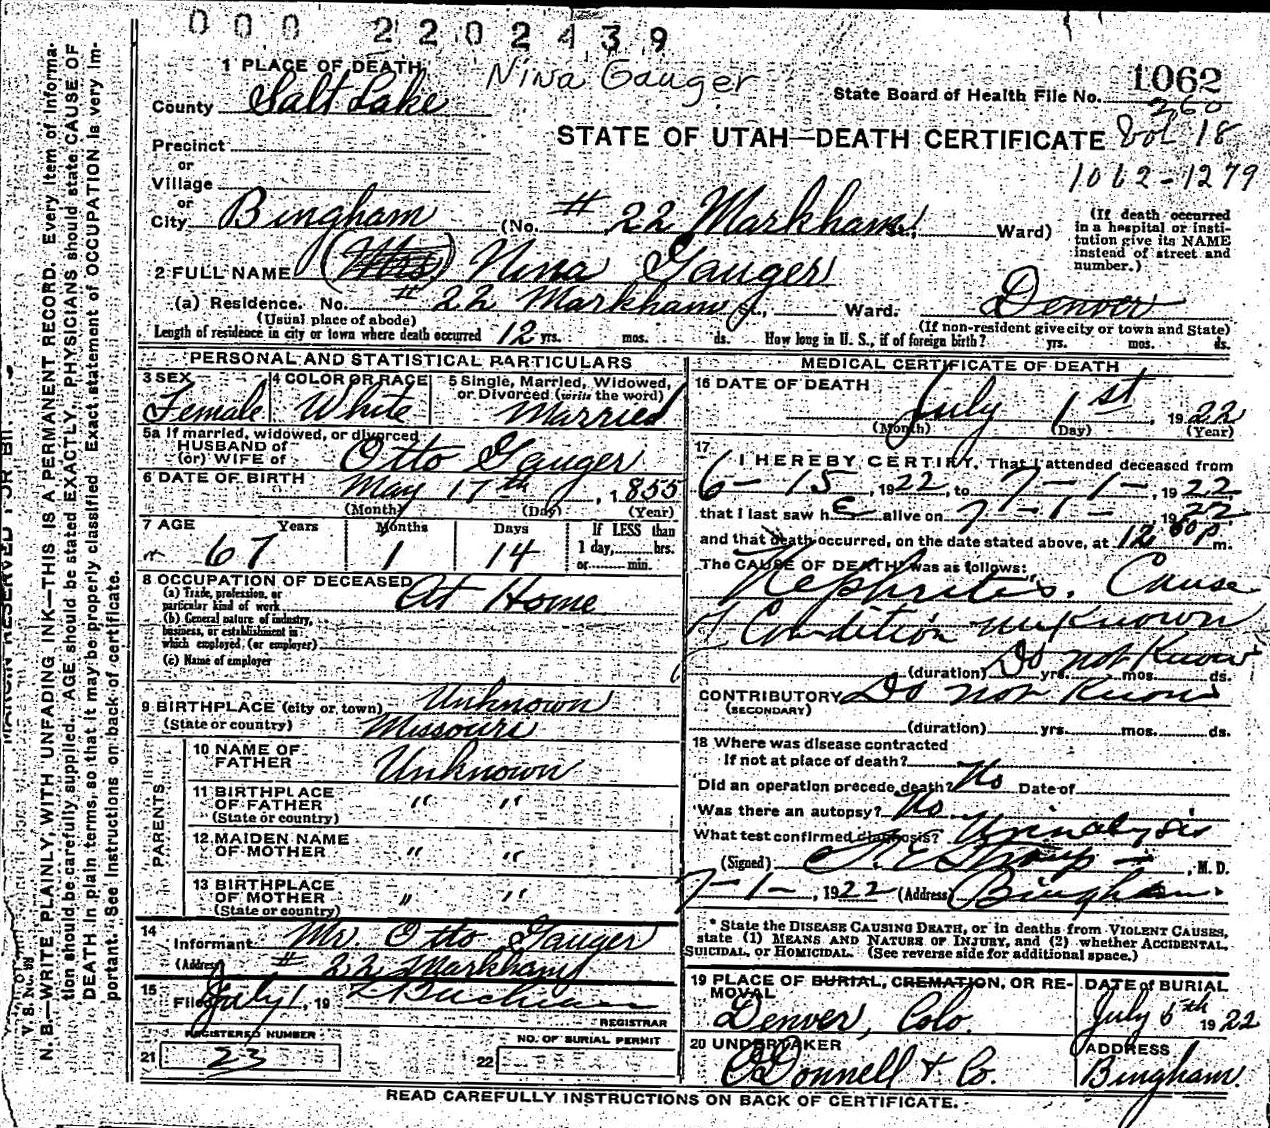 0 0 0 2 2 0 2 4 3 9
Nina Gauger
1 PLACE OF DEATH
County Salt Lake
State Board of Health File No. 1062
260
STATE OF UTAH—DEATH CERTIFICATE Vol 18
1062-1279
Precinct
or
Village
or
City Bingham (No. # 22 Markham St., Ward)
(If death occurred in a hospital or institution give its NAME instead of street and number.)
2 FULL NAME (Mrs) Nina Gauger
(a) Residence. No. # 22 Markham St., Ward. Denver
(Usual place of abode) (If non-resident give city or town and State)
Length of residence in city or town where death occurred 12 yrs. mos. ds. How long in U. S., if of foreign birth? yrs. mos. ds.
PERSONAL AND STATISTICAL PARTICULARS
3 SEX Female
4 COLOR OR RACE White
5 Single, Married, Widowed, or Divorced (write the word) Married
5a If married, widowed, or divorced
HUSBAND of
(or) WIFE of Otto Gauger
6 DATE OF BIRTH May 17th, 1855
(Month) (Day) (Year)
7 AGE Years Months Days If LESS than
67 1 14 1 day, hrs.
or min.
8 OCCUPATION OF DECEASED At Home
(a) Trade, profession, or particular kind of work
(b) General nature of industry, business, or establishment in which employed, (or employer)
(c) Name of employer
9 BIRTHPLACE (city or town) Unknown
(State or country) Missouri
PARENTS
10 NAME OF FATHER Unknown
11 BIRTHPLACE OF FATHER " "
(State or country)
12 MAIDEN NAME OF MOTHER " "
13 BIRTHPLACE OF MOTHER " "
(State or country)
14
Informant Mr Otto Gauger
(Address # 22 Markham
15
Filed July 1, 19
REGISTRAR
REGISTERED NUMBER
21 23
NO. OF BURIAL PERMIT
22
MEDICAL CERTIFICATE OF DEATH
16 DATE OF DEATH
July 1st, 1922
(Month) (Day) (Year)
17 I HEREBY CERTIFY, That I attended deceased from
6-15, 1922, to 7-1-, 1922
that I last saw h e alive on 7-1-1922
and that death occurred, on the date stated above, at 12 50 P m.
The CAUSE OF DEATH* was as follows:
Nephritis. Cause
of Condition unknown
(duration) Do not Know yrs. mos. ds.
CONTRIBUTORY Do not Know
(SECONDARY)
(duration) yrs. mos. ds.
18 Where was disease contracted
If not at place of death?
Did an operation precede death? No Date of
Was there an autopsy? No
What test confirmed diagnosis? Urinalysis
(Signed) , M. D.
7-1-, 1922 (Address) Bingham.
* State the DISEASE CAUSING DEATH, or in deaths from VIOLENT CAUSES,
state (1) MEANS AND NATURE OF INJURY, and (2) whether ACCIDENTAL,
SUICIDAL, or HOMICIDAL. (See reverse side for additional space.)
19 PLACE OF BURIAL, CREMATION, OR REMOVAL
Denver, Colo.
DATE of BURIAL
July 5th 1922
20 UNDERTAKER
O'Donnell & Co.
ADDRESS
Bingham.
READ CAREFULLY INSTRUCTIONS ON BACK OF CERTIFICATE.
MARGIN RESERVED FOR BI
N. B.—WRITE PLAINLY, WITH UNFADING INK—THIS IS A PERMANENT RECORD. Every item of informa-
tion should be carefully supplied. AGE should be stated EXACTLY. PHYSICIANS should state CAUSE OF
DEATH in plain terms, so that it may be properly classified. Exact statement of OCCUPATION is very im-
portant. See instructions on back of certificate.